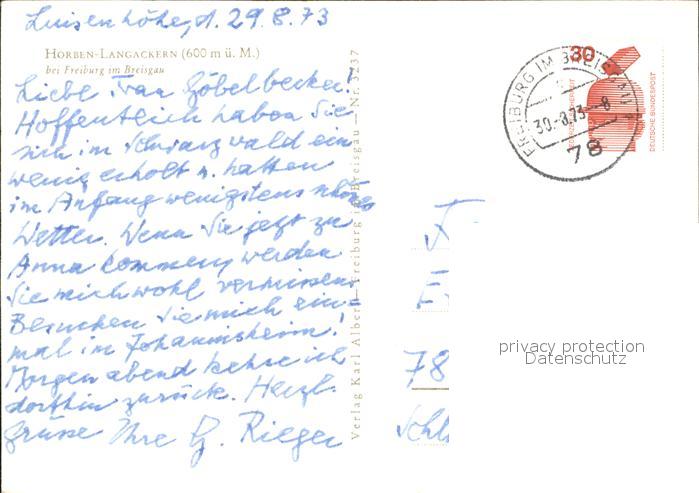 Luisenhöhe, d. 29.8.73
HORBEN-LANGACKERN (600 m ü. M.)
bei Freiburg im Breisgau
Liebe Frau Göbelbecker!
Hoffentlich haben Sie
sich im Schwarzwald ein
wenig erholt u. hatten
im Anfang wenigstens schönes
Wetter. Wenn Sie jetzt zu
Anna kommen, werden
Sie mich wohl vermissen.
Besuchen Sie mich ein-
mal im Johannisheim!
Morgen abend kehre ich
dorthin zurück. Herzl.
Grüsse Ihre G. Rieger
Verlag Karl Alber — Freiburg im Breisgau — Nr. 3237
30
DEUTSCHE BUNDESPOST
FREIBURG IM BREISGAU
30.-8.73.--8
78
F
78
Schl
privacy protection
Datenschutz